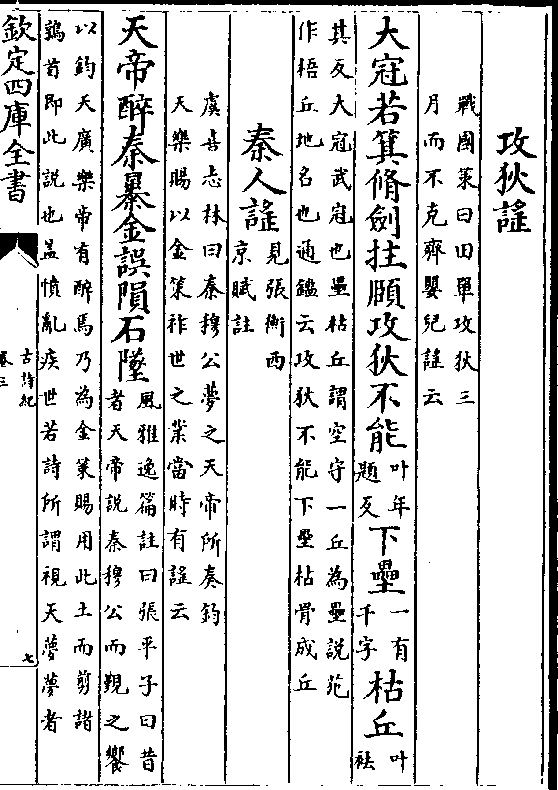 攻狄謡
戰國策曰田單攻狄三
月而不克齊嬰兒謡云
大冠若箕脩劍拄頤攻狄不能叶年題反下壘一有千字枯丘叶袪
其反大冠武冠也壘枯丘謂空守一丘為壘説苑
作梧丘地名也通鑑云攻狄不能下壘枯骨成丘
秦人謡見張衡西京賦註
虞喜志林曰秦穆公夢之天帝所奏鈞
天樂賜以金策祚世之業當時有謡云
天帝醉秦暴金誤隕石墜風雅逸篇註曰張平子曰昔者天帝説秦穆公而覲之饗
以鈞天廣樂帝有醉焉乃為金策賜用此土而剪諸
鶉首即此説也盖憤亂疾世若詩所謂視天夢夢者
欽定四庫全書
古詩紀
卷三
七